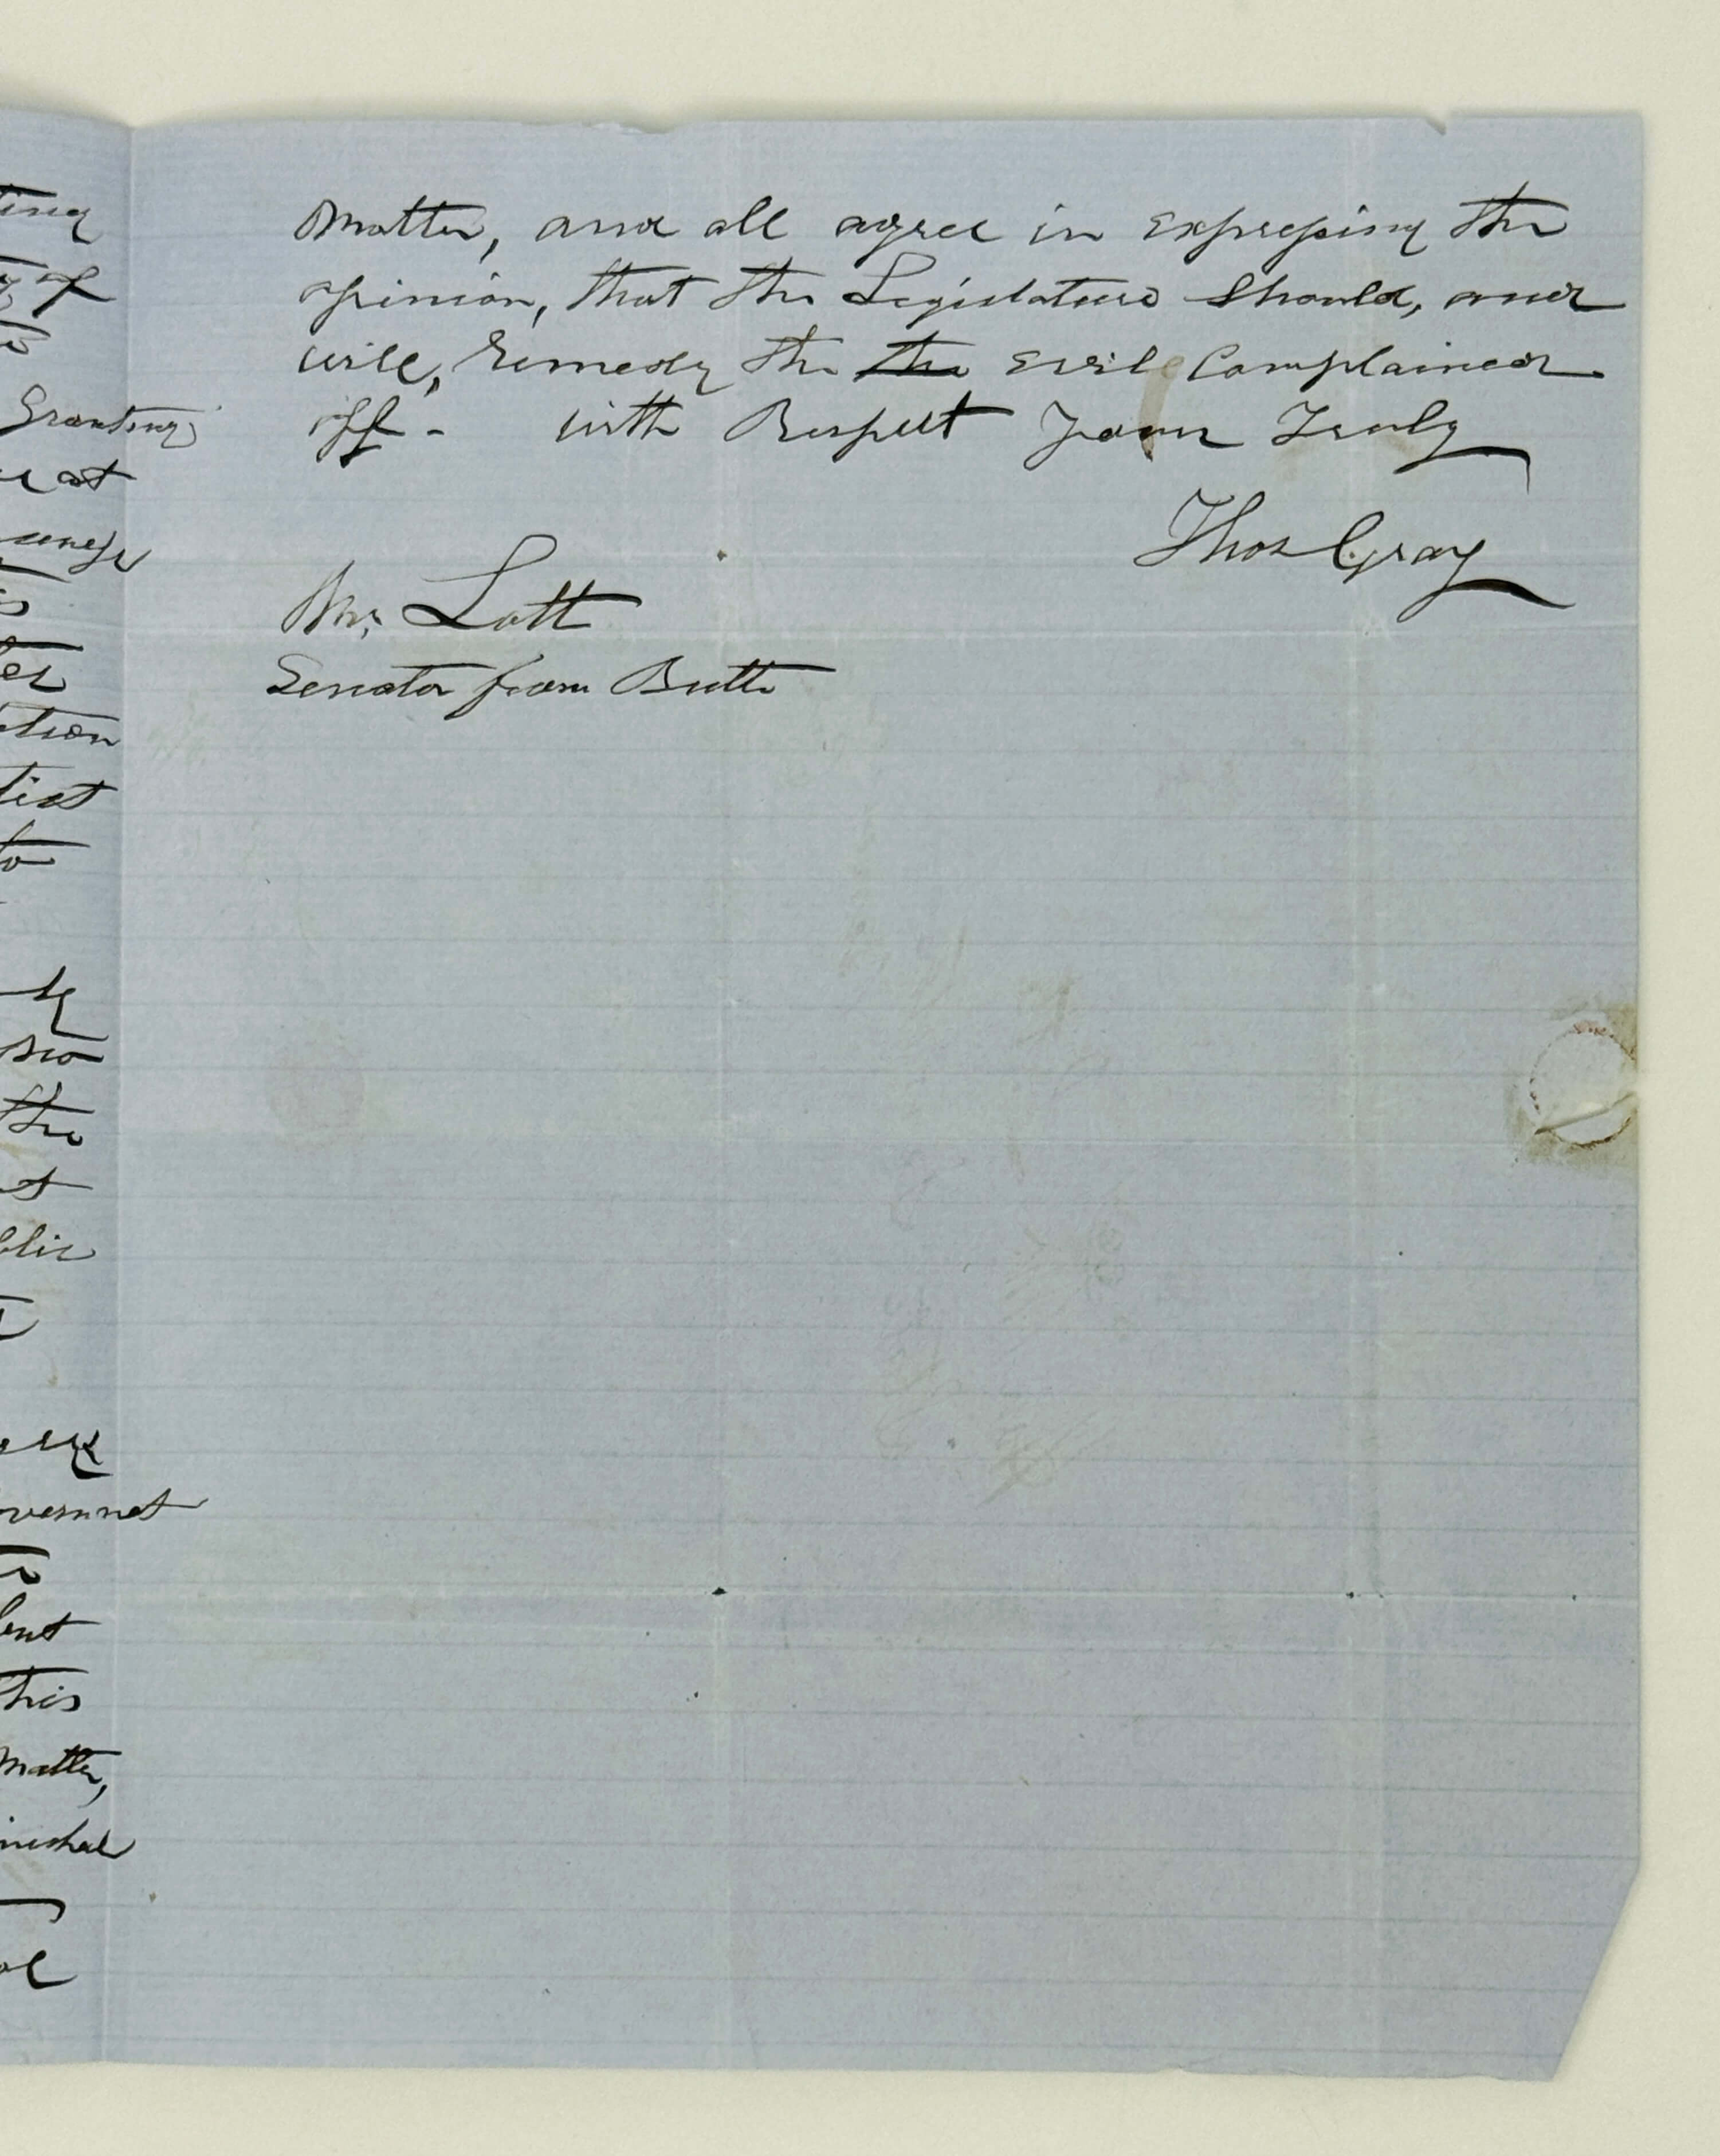 ting
Granting
at
ter
ction
tist
to
by
the
blic
overnmet
to
but
this
matter,
matter, and all agree in expressing the
opinion, that the Legislature should, and
will, remedy the the evil complained
off - with Respect Yours Truly
Thos Gray
Mr. Lott
Senator from Butte